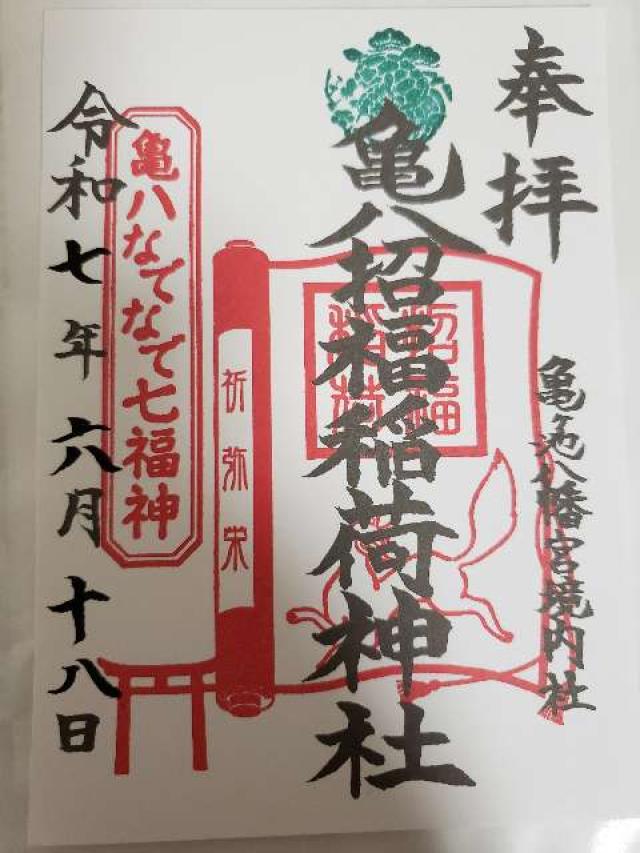 奉拝
亀ヶ池八幡宮境内社
亀八招福稲荷神社
招福
稲荷
祈弥栄
亀八なでなで七福神
令和七年六月十八日